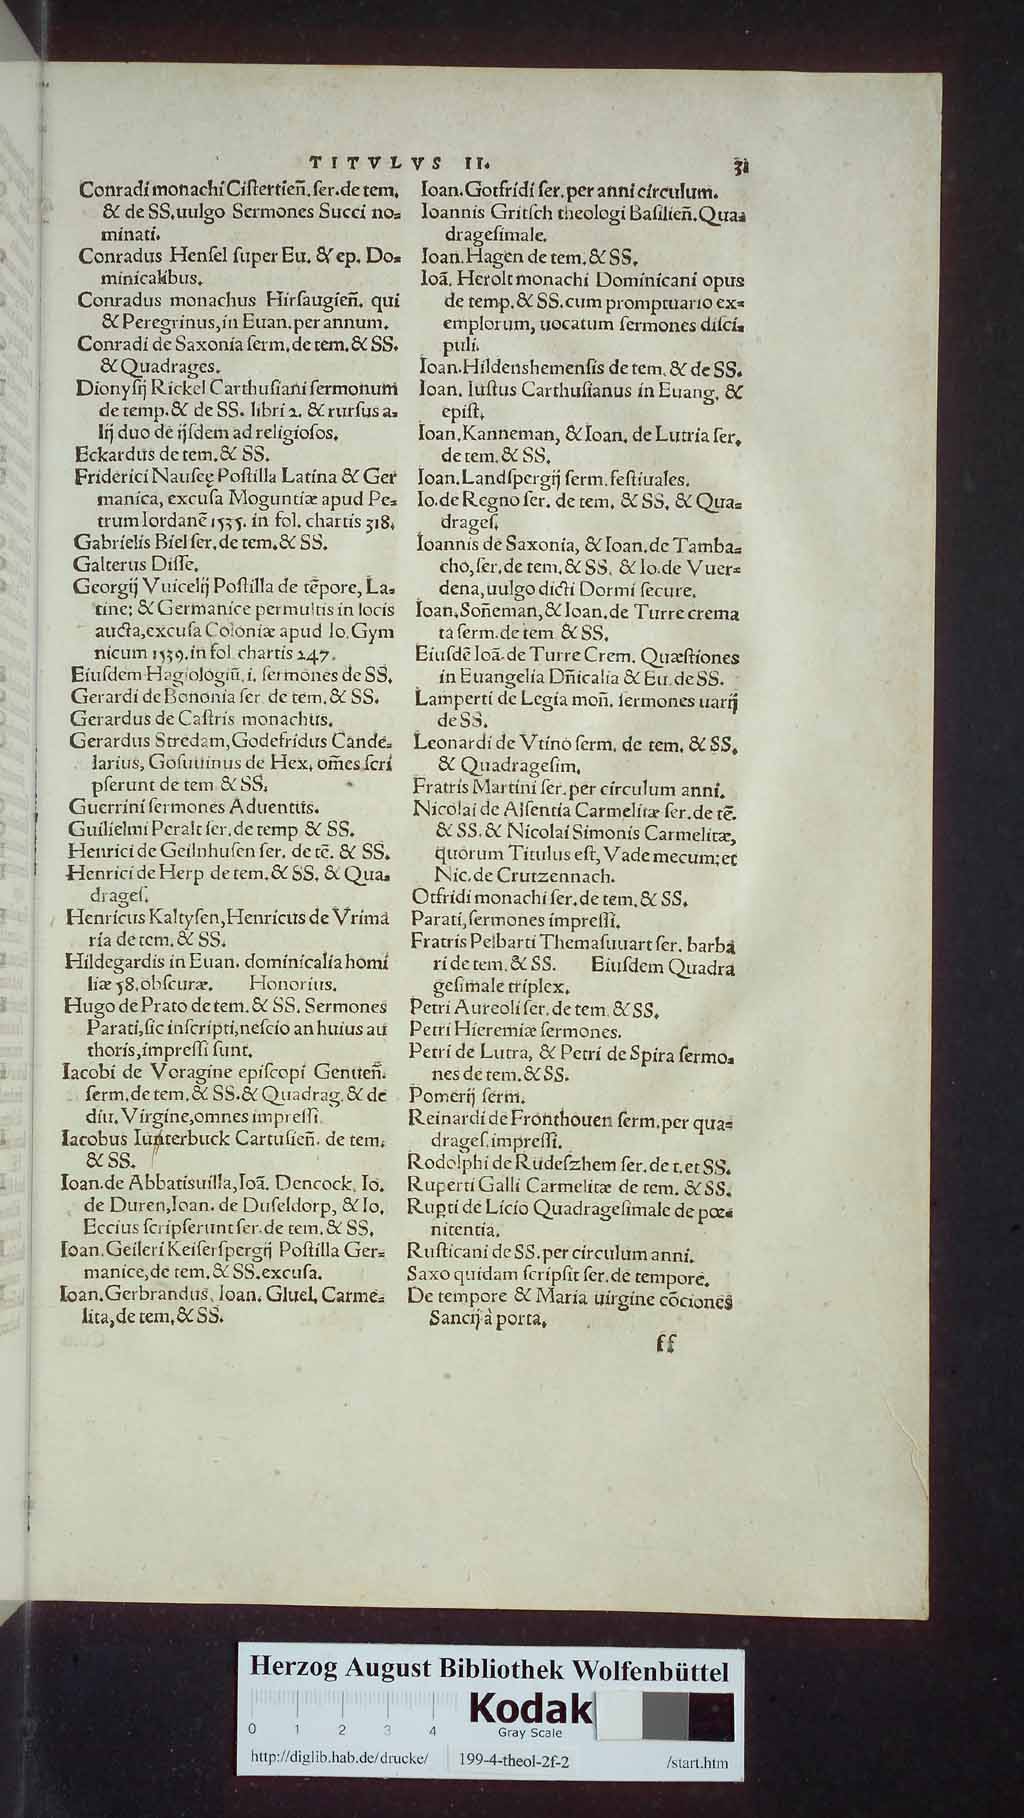 TITVLVS II. 31
Conradi monachi Ciſtertien̄. ſer. de tem.
& de SS. uulgo Sermones Succi no=
minati.
Conradus Henſel ſuper Eu. & ep. Do=
minicalibus.
Conradus monachus Hirſaugien̄. qui
& Peregrinus, in Euan. per annum.
Conradi de Saxonia ſerm. de tem. & SS.
& Quadrages.
Dionyſij Rickel Carthuſiani ſermonum
de temp. & de SS. libri 2. & rurſus a=
lij duo de ijſdem ad religioſos.
Eckardus de tem. & SS.
Friderici Nauſeę Poſtilla Latina & Ger
manica, excuſa Moguntiæ apud Pe=
trum Iordanē 1535. in fol. chartis 318.
Gabrielis Biel ſer. de tem. & SS.
Galterus Diſſe.
Georgij Vuicelij Poſtilla de tēpore, La=
tine: & Germanice permultis in locis
aucta, excuſa Coloniæ apud Io. Gym
nicum 1539. in fol. chartis 247.
Eiuſdem Hagiologiū. i. ſermones de SS.
Gerardi de Bononia ſer. de tem. & SS.
Gerardus de Caſtris monachus.
Gerardus Stredam, Godefridus Cande=
larius, Goſuuinus de Hex. om̄es ſcri
pſerunt de tem. & SS.
Guerrini ſermones Aduentus.
Guilielmi Peralt ſer. de temp. & SS.
Henrici de Geilnhuſen ſer. de tē. & SS.
Henrici de Herp de tem. & SS. & Qua=
drageſ.
Henricus Kaltyſen, Henricus de Vrima
ria de tem. & SS.
Hildegardis in Euan. dominicalia homi
liæ 58. obſcuræ. Honorius.
Hugo de Prato de tem. & SS. Sermones
Parati, ſic inſcripti, neſcio an huius au
thoris, impreſſi ſunt.
Iacobi de Voragine epiſcopi Genuen̄.
ſerm. de tem. & SS. & Quadrag. & de
diu. Virgine, omnes impreſſi.
Iacobus Iunterbuck Cartuſien̄. de tem.
& SS.
Ioan. de Abbatisuilla, Ioā. Dencock, Io.
de Duren, Ioan. de Duſeldorp, & Io.
Eccius ſcripſerunt ſer. de tem. & SS.
Ioan. Geileri Keiſerſpergij Poſtilla Ger=
manice, de tem. & SS. excuſa.
Ioan. Gerbrandus, Ioan. Gluel, Carme=
lita, de tem. & SS.
Ioan. Gotfridi ſer. per anni circulum.
Ioannis Gritſch theologi Baſilien̄. Qua=
drageſimale.
Ioan. Hagen de tem. & SS.
Ioā. Herolt monachi Dominicani opus
de temp. & SS. cum promptuario ex=
emplorum, uocatum ſermones diſci=
puli.
Ioan. Hildenshemenſis de tem. & de SS.
Ioan. Iuſtus Carthuſianus in Euang. &
epiſt.
Ioan. Kanneman, & Ioan. de Lutria ſer.
de tem. & SS.
Ioan. Landſpergij ſerm. feſtiuales.
Io. de Regno ſer. de tem. & SS. & Qua=
drageſ.
Ioannis de Saxonia, & Ioan. de Tamba=
cho, ſer. de tem. & SS. & Io. de Vuer=
dena, uulgo dicti Dormi ſecure.
Ioan. Son̄eman, & Ioan. de Turre crema
ta ſerm. de tem. & SS.
Eiuſdē Ioā. de Turre Crem. Quæſtiones
in Euangelia Dn̄icalia & Eu. de SS.
Lamperti de Legia mon̄. ſermones uarij
de SS.
Leonardi de Vtino ſerm. de tem. & SS.
& Quadrageſim.
Fratris Martini ſer. per circulum anni.
Nicolai de Alſentia Carmelitæ ſer. de tē.
& SS. & Nicolai Simonis Carmelitæ,
quorum Titulus eſt, Vade mecum: et
Nic. de Crutzennach.
Otfridi monachi ſer. de tem. & SS.
Parati, ſermones impreſſi.
Fratris Pelbarti Themaſuuart ſer. barba
ri de tem. & SS. Eiuſdem Quadra
geſimale triplex.
Petri Aureoli ſer. de tem. & SS.
Petri Hieremiæ ſermones.
Petri de Lutra, & Petri de Spira ſermo=
nes de tem. & SS.
Pomerij ſerm.
Reinardi de Fronthouen ſerm. per qua=
drageſ. impreſſi.
Rodolphi de Rudeſzhem ſer. de t. et SS.
Ruperti Galli Carmelitæ de tem. & SS.
Rupti de Licio Quadrageſimale de pœ=
nitentia.
Ruſticani de SS. per circulum anni.
Saxo quidam ſcripſit ſer. de tempore.
De tempore & Maria uirgine cōciones
Sancij à porta.
ff
Herzog August Bibliothek Wolfenbüttel
0 1 2 3 4
Kodak
Gray Scale
http://diglib.hab.de/drucke/ 199-4-theol-2f-2 /start.htm